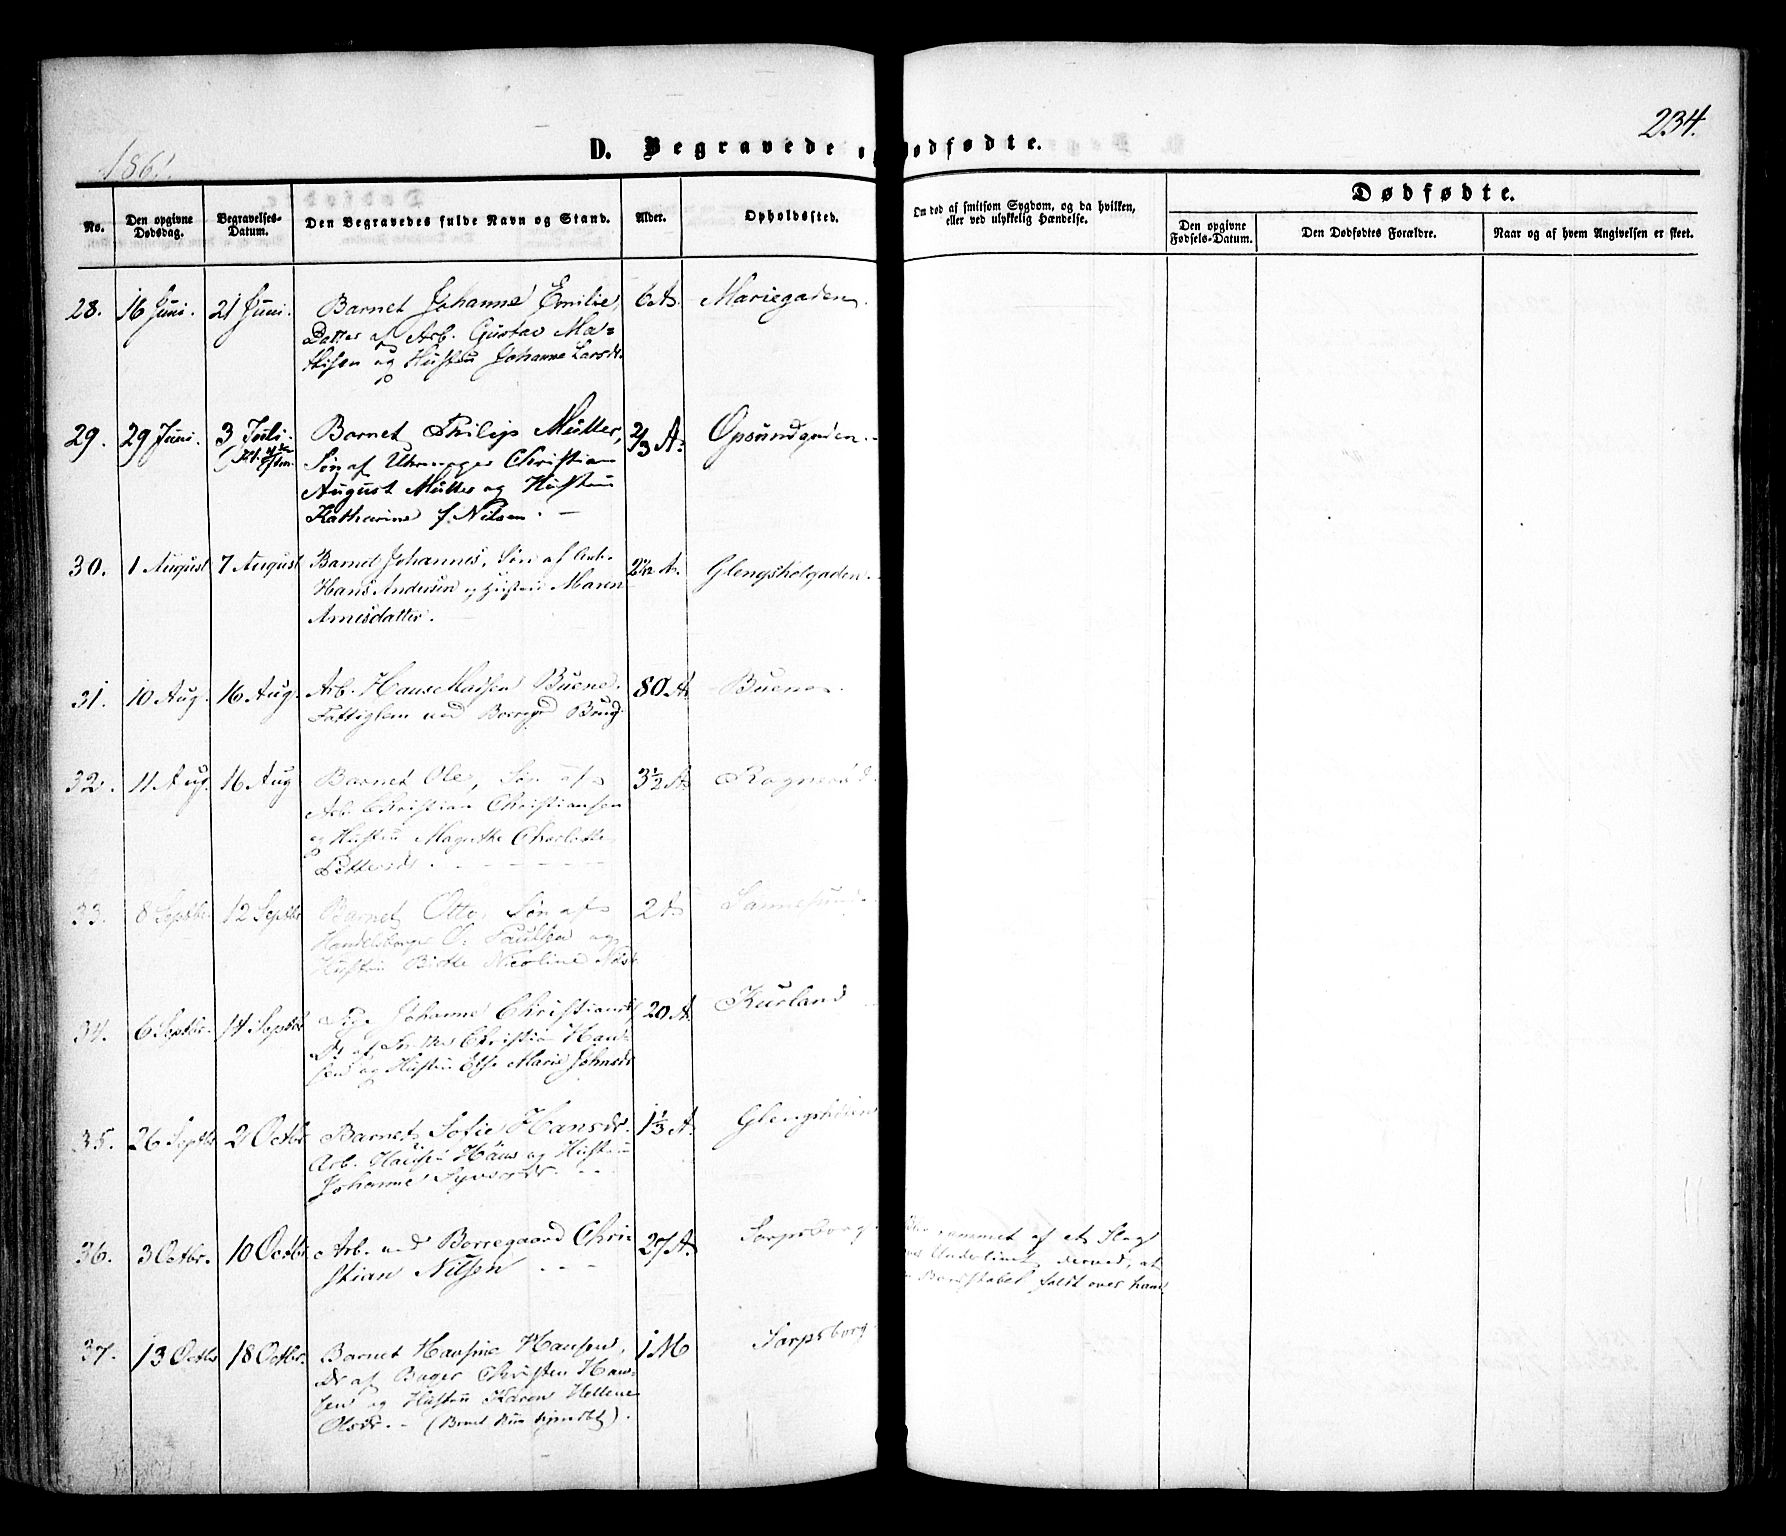 234.
1861.
D. Begravede og Dødfødte.
Dødfødte.
No.
Den opgivne Dødsdag.
Begravelses-Datum.
Den Begravedes fulde Navn og Stand.
Alder.
Opholdssted.
Om død af smitsom Sygdom, og da hvilken,
eller ved ulykkelig Hændelse.
Den opgivne Fødsels-Datum.
Den Dødfødtes Forældre.
Naar og af hvem Angivelsen er skeet.
28. 16 Juni. 21 Juni. Barnet Johanne Emilie, 6 A. Mariegaden.
Datter af Arb. Gustav Ma-
thisen og Hustru Johanne Larsdr.
29. 29 Juni. 3 Juli. Barnet Philip Müller, 2/3 A. Opsundgaden.
Søn af Uhrmager Christian
August Müller og Hustru
Katharine f. Nilsen. —
30. 1 August 7 August Barnet Johannes, Søn af Arb. 2 1/2 A. Glengsholgaden.
Hans Andersen og Hustru Maren
Arnesdatter.
31. 10 Aug. 16 Aug. Arb. Hans Madsen Buene. 80 A. Buene.
Fattiglem ved Borregd Brug
32. 11 Aug. 16 Aug Barnet Ole, Søn af 3 1/2 A.
Arb. Christian Christiansen
og Hustru Magrethe Charlotte
Pettersdr.
33. 8 Septbr. 12 Septbr Barnet Otto, Søn af 2 A. Sannesund
Handelsborger O. Paulsen og
Hustru Birthe Nicoline
34. 6 Septbr. 14 Septbr Pige Johanne Christiansdr, 20 A. Kurland
Dr af Christian Han-
sen og Hustru Else Marie Johnsdr
35. 26 Septbr 2 Octbr Barnet Sofie Hansdr. 1 1/3 A.
Arb. Hans og Hustru
Johanne Syversdr.
36. 3 Octbr. 10 Octbr Arb. ved Borregaard Chri- 27 A. Sarpsborg
stian Nilsen
af et Slag
Underlivet derved, at
Bordstabel faldt over ham.
37. 13 Octbr 18 Octbr. Barnet Hansine Hansen, 1 M Sarpsborg
Dr af Bager Christen Han-
sen og Hustru Karen Hellene
Olsdr. — (Barnet kun hjemdbt).